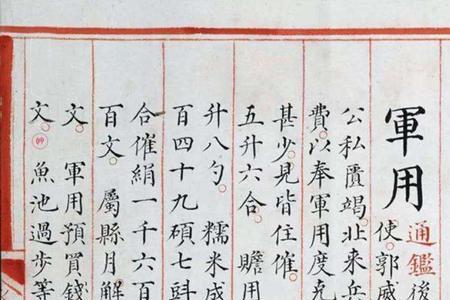 軍用
通鑑後
使。郭威
公私匱竭。北來兵
費。以奉軍用度
甚少。見皆住催。
五升六合。贍用
升八勺。糯米成
百四十九碩七㪷
合催絹一千六百
百文。屬縣月解
文。軍用預買錢
文。魚池過步等